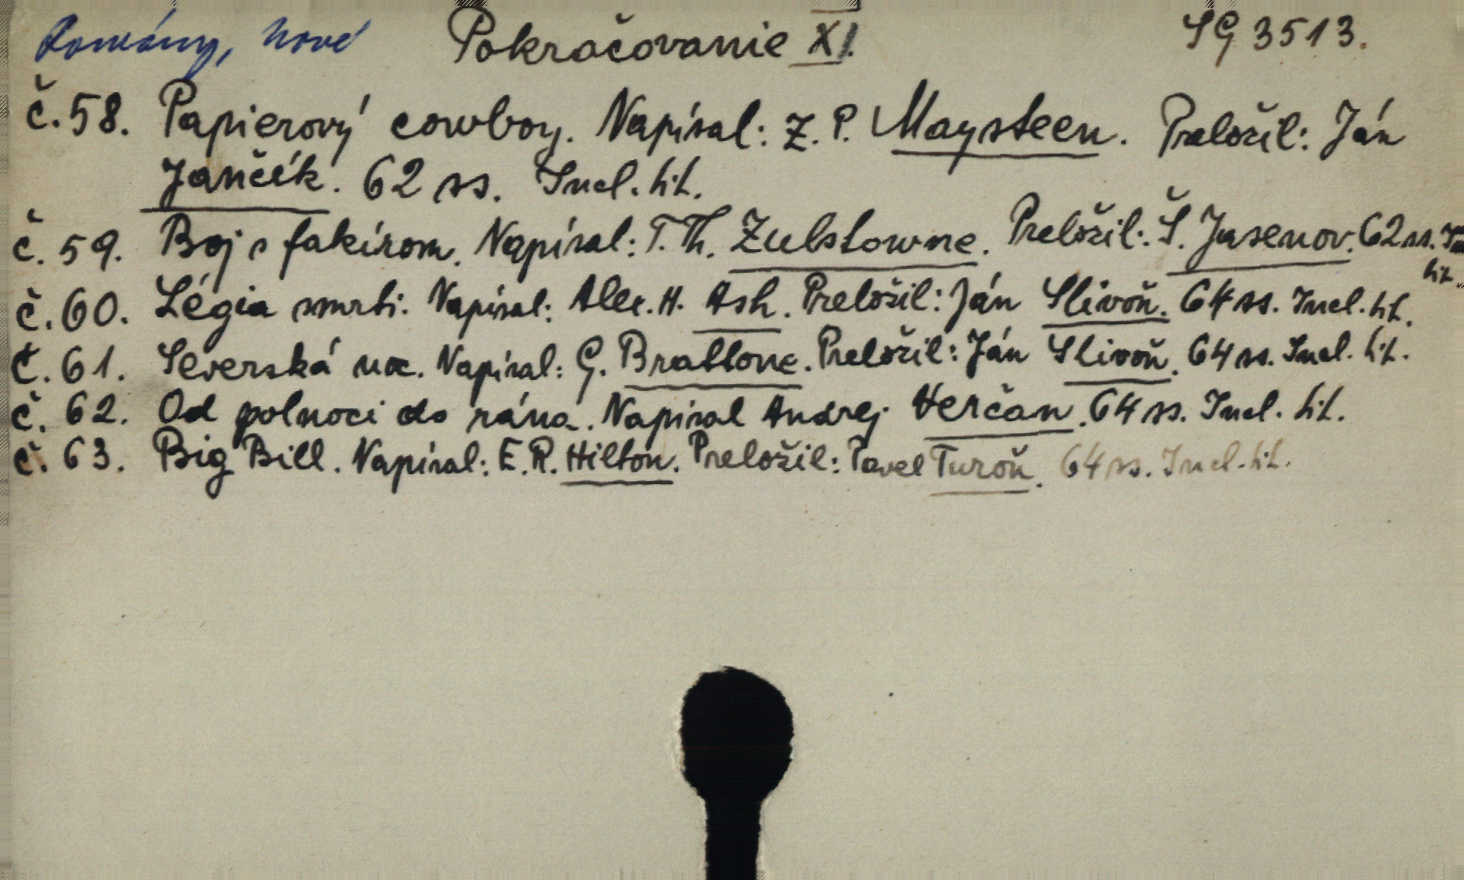 Romány, Nové Pokračovanie XI. SG 3513.
č. 58. Papierový cowboy. Napísal: Z. P. Maysteen. Preložil: Ján
Jančík. 62 ss. Incl. tit.
č. 59. Boj s fakírom. Napísal: T. Th. Zulstowne. Preložil: Š. Jasenov. 62 ss. In
tit.
č. 60. Légia smrti. Napísal: Alex. H. Ash. Preložil: Ján Slivoň. 64 ss. Incl. tit.
č. 61. Severská noc. Napísal: G. Brattone. Preložil: Ján Slivoň. 64 ss. Incl. tit.
č. 62. Od polnoci do rána. Napísal Andrej Verčan. 64 ss. Incl. tit.
č. 63. Big Bill. Napísal: E. R. Hilton. Preložil: Pavel Turoň. 64 ss. Incl. tit.